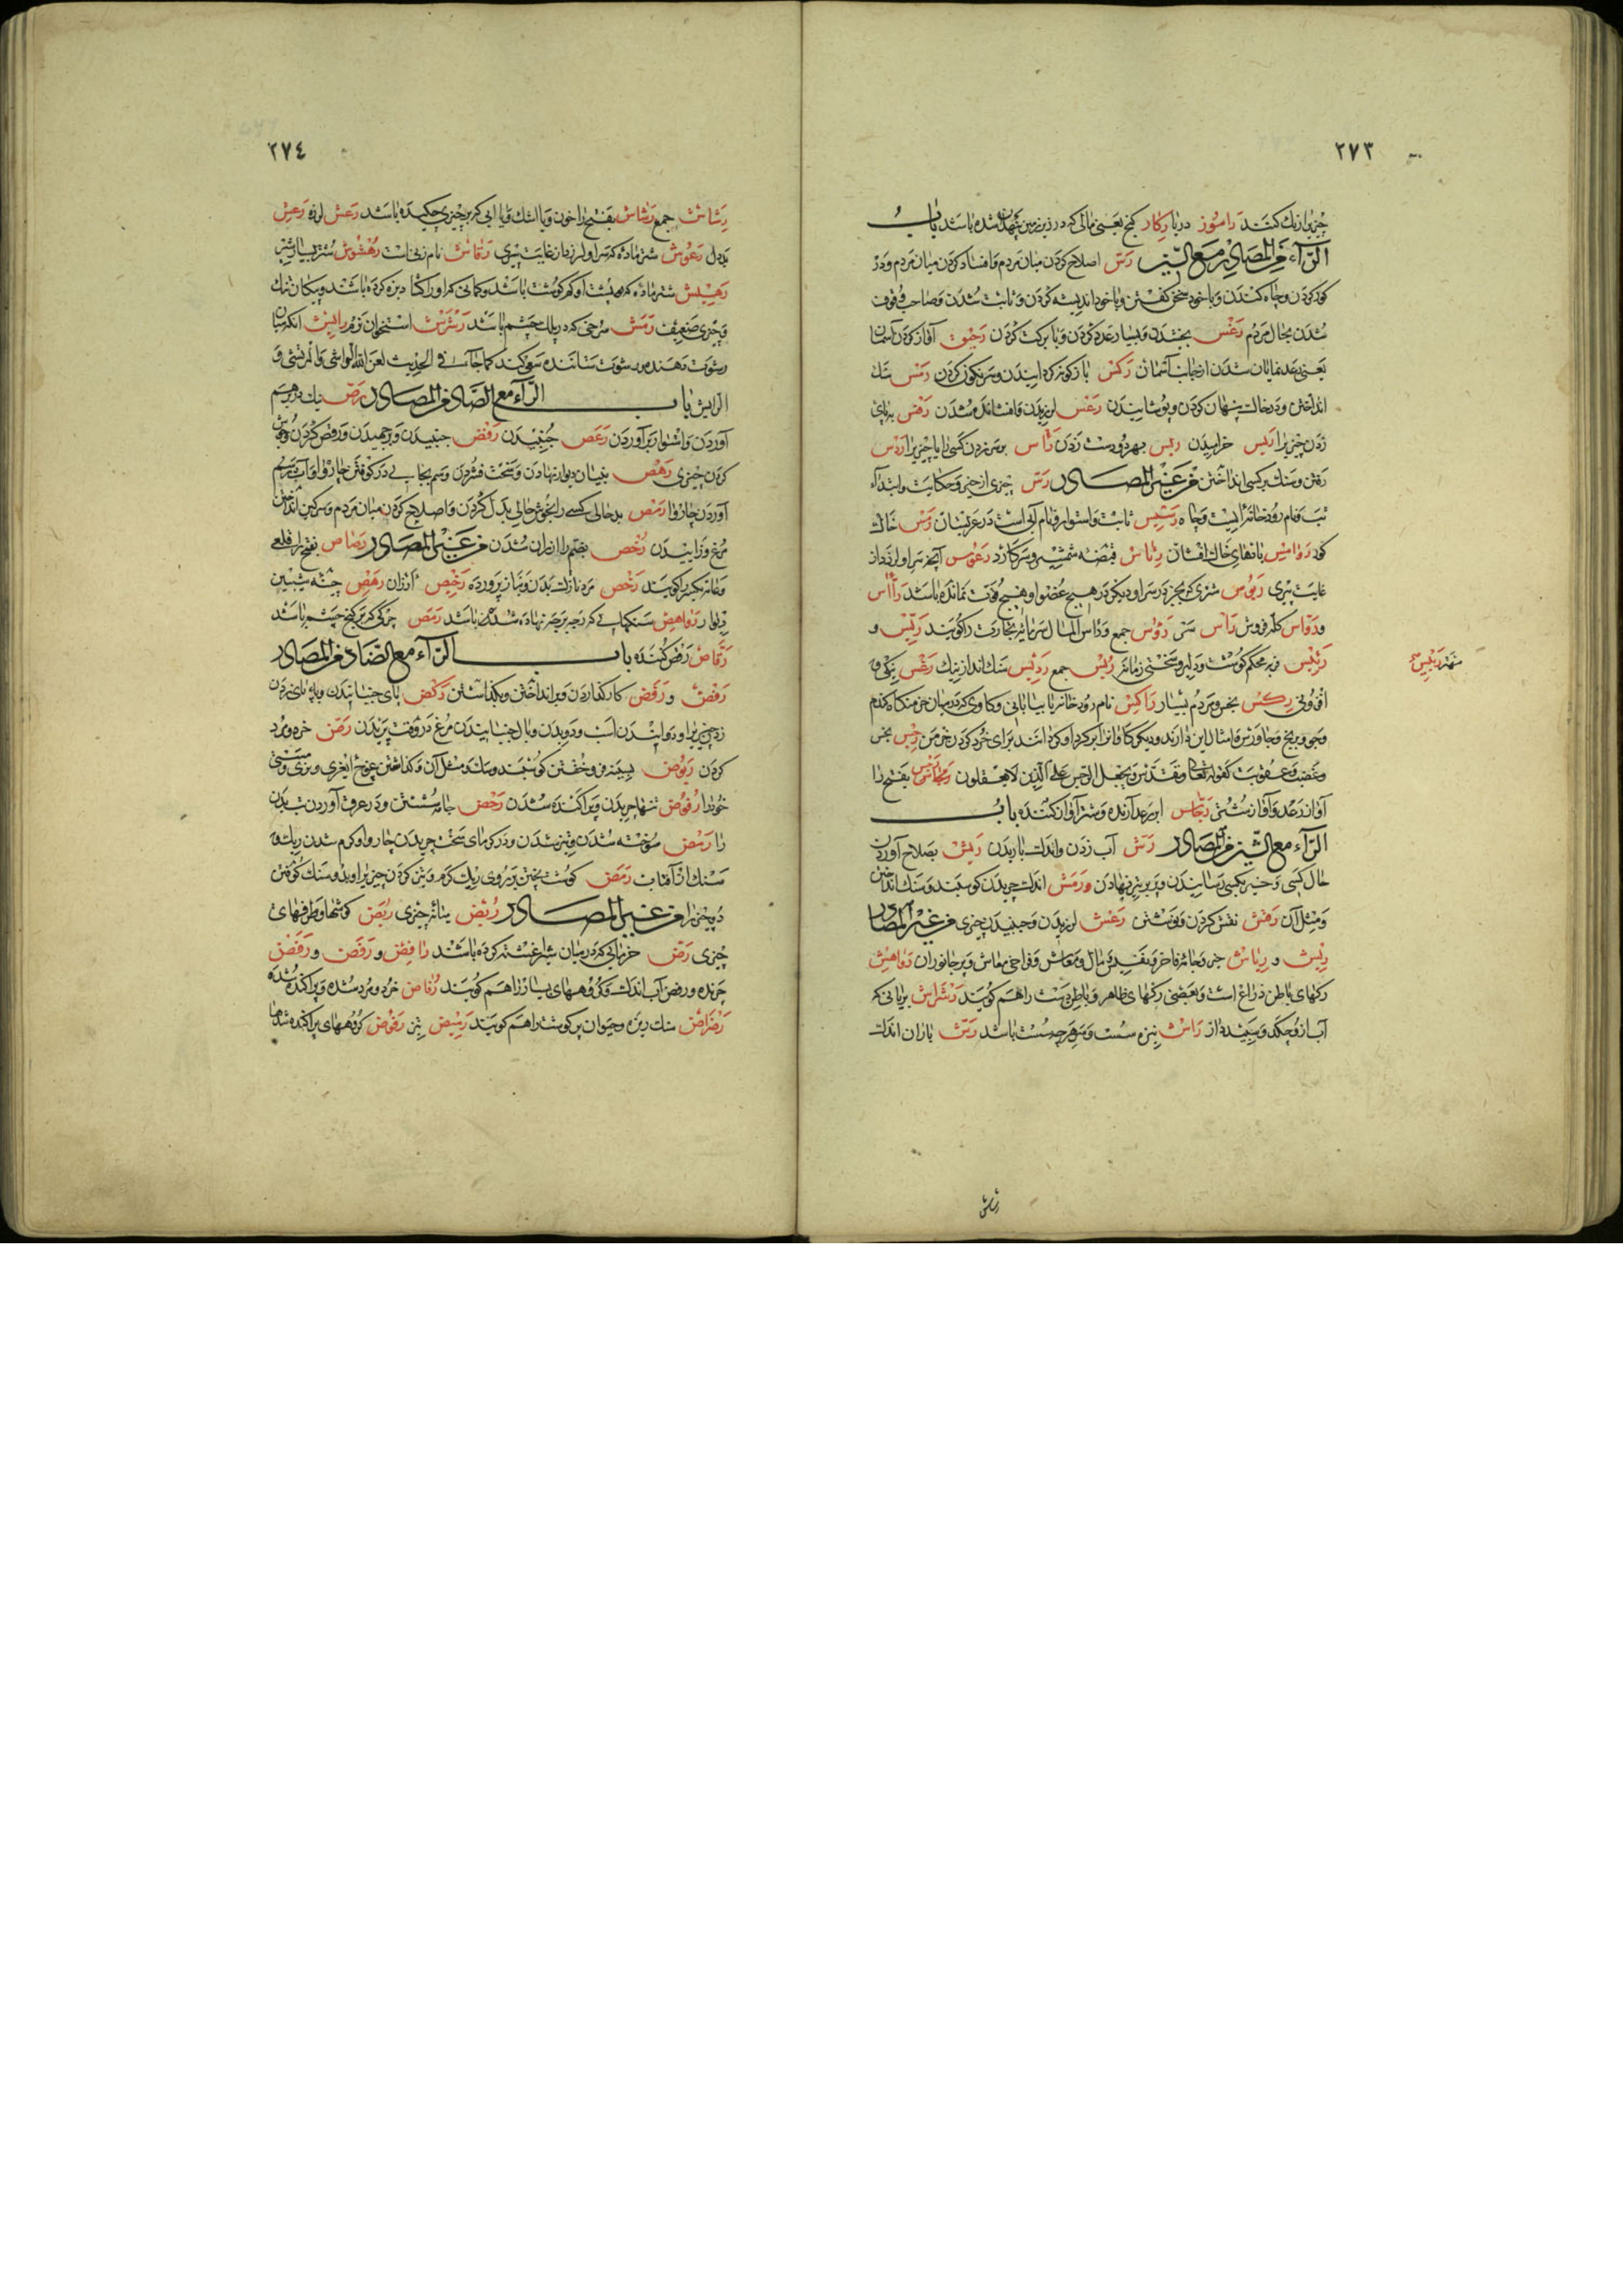 ٢٧٣
چیزیرا زنک کنند راسوز دریا رکاز کنج یعنی مالی که در زیر زمین پنهان شده باشد باب
الرّاء من المصادر مع السّین رسّ اصلاح کردن میان مردم و افساد کردن میان مردم و در
کور کردن و چاه کندن و با خود سخن کفتن و با خود اندیشه کردن و ثابت شدن و صاحب وقوف
شدن بحال مردم رغس بخشیدن و بسیار عدد کردن و با برکت کردن رجس آواز کردن آسمان
یعنی رعد نمایان شدن از جانب آسمان رکس باز کونه کردانیدن و سرنکون کردن رمس سنک
انداختن و در خاک پنهان کردن و پوشانیدن رعس لرزیدن و افشانده شدن رفس بپای
زدن چیزیرا ریس خرامیدن ربس بهر دو دست زدن رأس بر سر زدن کسی را یا چیزیرا ردس
رفتن و سنک بر کسی انداختن من غیر المصادر رسّ چیزی از خبر و حکایت و ابتداء
تب و نام رودخانه ایست و چاه رسیس ثابت و استوار و نام آبی است در عربستان رمس خاک
کور روامس بادهای خاک افشان رئاس قبضه شمشیر و سر کارد رعوس آنکه سر او لرزد از
غایت پیری رؤس شتری که بجز در سر او دیکر در هیچ عضو او هیچ قوت نمانده باشد رأّاس
و روّاس کله فروش رأس سر رؤس جمع و رأس المال سرمایه تجارت را کویند ریّس و
رئیس فربه محکم کوشت و دلیر و سختی زمانه ربس جمع ردیس سنک انداز نیک رغس نیکی و
افزونی رکس نجس و مردم بسیار راکس نام رودخانه یا بیابانی و کاوی که در میان خرمنکاه کندم
و جو و برنج و جاورس و امثال این دارند و دیکر کاوانرا بر کرد او کردانند برای خرد کردن خرمن رجس نجس
و غضب و عقوبت کقوله تعالی و تقدس و یجعل الرجس علی الذین لا یعقلون رجس بفتح را
آواز رعد و آواز شتر رجّاس ابر رعد آرنده و شتر آواز کننده باب
الرّاء مع الشّین من المصادر رشّ آب زدن و اندک باریدن ریش بصلاح آوردن
حال کسی و خیر بکسی رسانیدن و پر بر تیر نهادن و رمش اندک چریدن کوسفند و سنک انداختن
و مثل آن رقش نقش کردن و نوشتن رعش لرزیدن و جنبیدن چیزی من غیر المصادر
ریش و ریاش جامه فاخر و نفیس و مال و معاش و فراخی معاش و پر جانوران رواهش
رکهای باطن ذراع است و بعضی رکهای ظاهر و باطن دست را هم کویند رشراش بریانی که
آب از و چکد و سفید از راش نیزه سست و هر چه سست باشد رشّ باران اندک
رشاش
٢٧٤
رشاش جمع رشاش بفتح را خون و یا اشک و یا آبی که بر چیزی چکیده باشد رعش لرزه رعش
بددل رعوش شتر ماده که سر او لرزد از غایت پیری رقاش نام زنی است رهشوش شتر بسیار شیر
رهیش شتر ماده که در پشت او کم کوشت باشد و کمانی که او را کشاده زه کرده باشند و پیکان تنک
و چیزی ضعیف رمش سرخی که در پلک چشم باشد رشرش استخوان نرم رایش آنکه میان
رشوت دهنده و رشوت ستاننده سعی کند کما جاء فی الحدیث لعن الله الراشی و المرتشی و
الرایش باب الرّاء مع الصّاد من المصادر رصّ نیک بر هم
آوردن و استوار بر آوردن رعص جنبیدن رقص جنبیدن و برجهیدن و رقص کردن
کردن چیزی رهص بنیان دیوار نهادن و سخت فشردن
آوردن چاروا رمص بد حالی کسی را بخوش حالی بدل کردن و اصلاح کردن میان مردم و سرکین انداختن
مرغ و زاییدن رخص بضم را ارزان شدن من غیر المصادر رصاص بفتح را قلعی
و عامه بکسر را کویند رخص مرد نازک بدن و نیاز پرورده رخیص ارزان رهص چینه پیشین
دیوار رواهص سنکهایی که بر هم نهاده شده باشد رمص چرکی که بر کنج چشم باشد
رقّاص رقص کننده باب الرّاء مع الضّاد من المصادر
رفض و رفض کار کذاردن و بر انداختن و بکذاشتن رکض پای جنبانیدن و بپای زدن
چیزیرا و دوانیدن اسب و دویدن و بال جنبانیدن مرغ در وقت پریدن رضّ خرد و مرد
کردن ربوض بسینه فرو خفتن کوسفند و سک و مثل آن
خود را رفوض تنها چریدن و پراکنده شدن رحض جامه شستن و در عرق آوردن تب بدن
را رمض سوخته شدن و تیز شدن و در کرمای سخت چریدن چاروا و کرم شدن ریک و
سنک از آفتاب رمض کوشت پختن بر روی ریک کرم و تیز کردن چیزیرا و بدو سنک کوفتن
دو چیز را من غیر المصادر ربض میانه چیزی ربض کوشها و طرفهای
چیزی رضّ خرمایی که در میان شیر آغشته کرده باشند رافض و رفض و رفض
چرنده و رفض آب اندک و کروههای بسیار را هم کویند رضاض خرد و مرد شده و پراکنده شده
رضراض سنک ریزه و حیوان پر کوشت را هم کویند ربیض تیز رفوض کروههای پراکنده شده